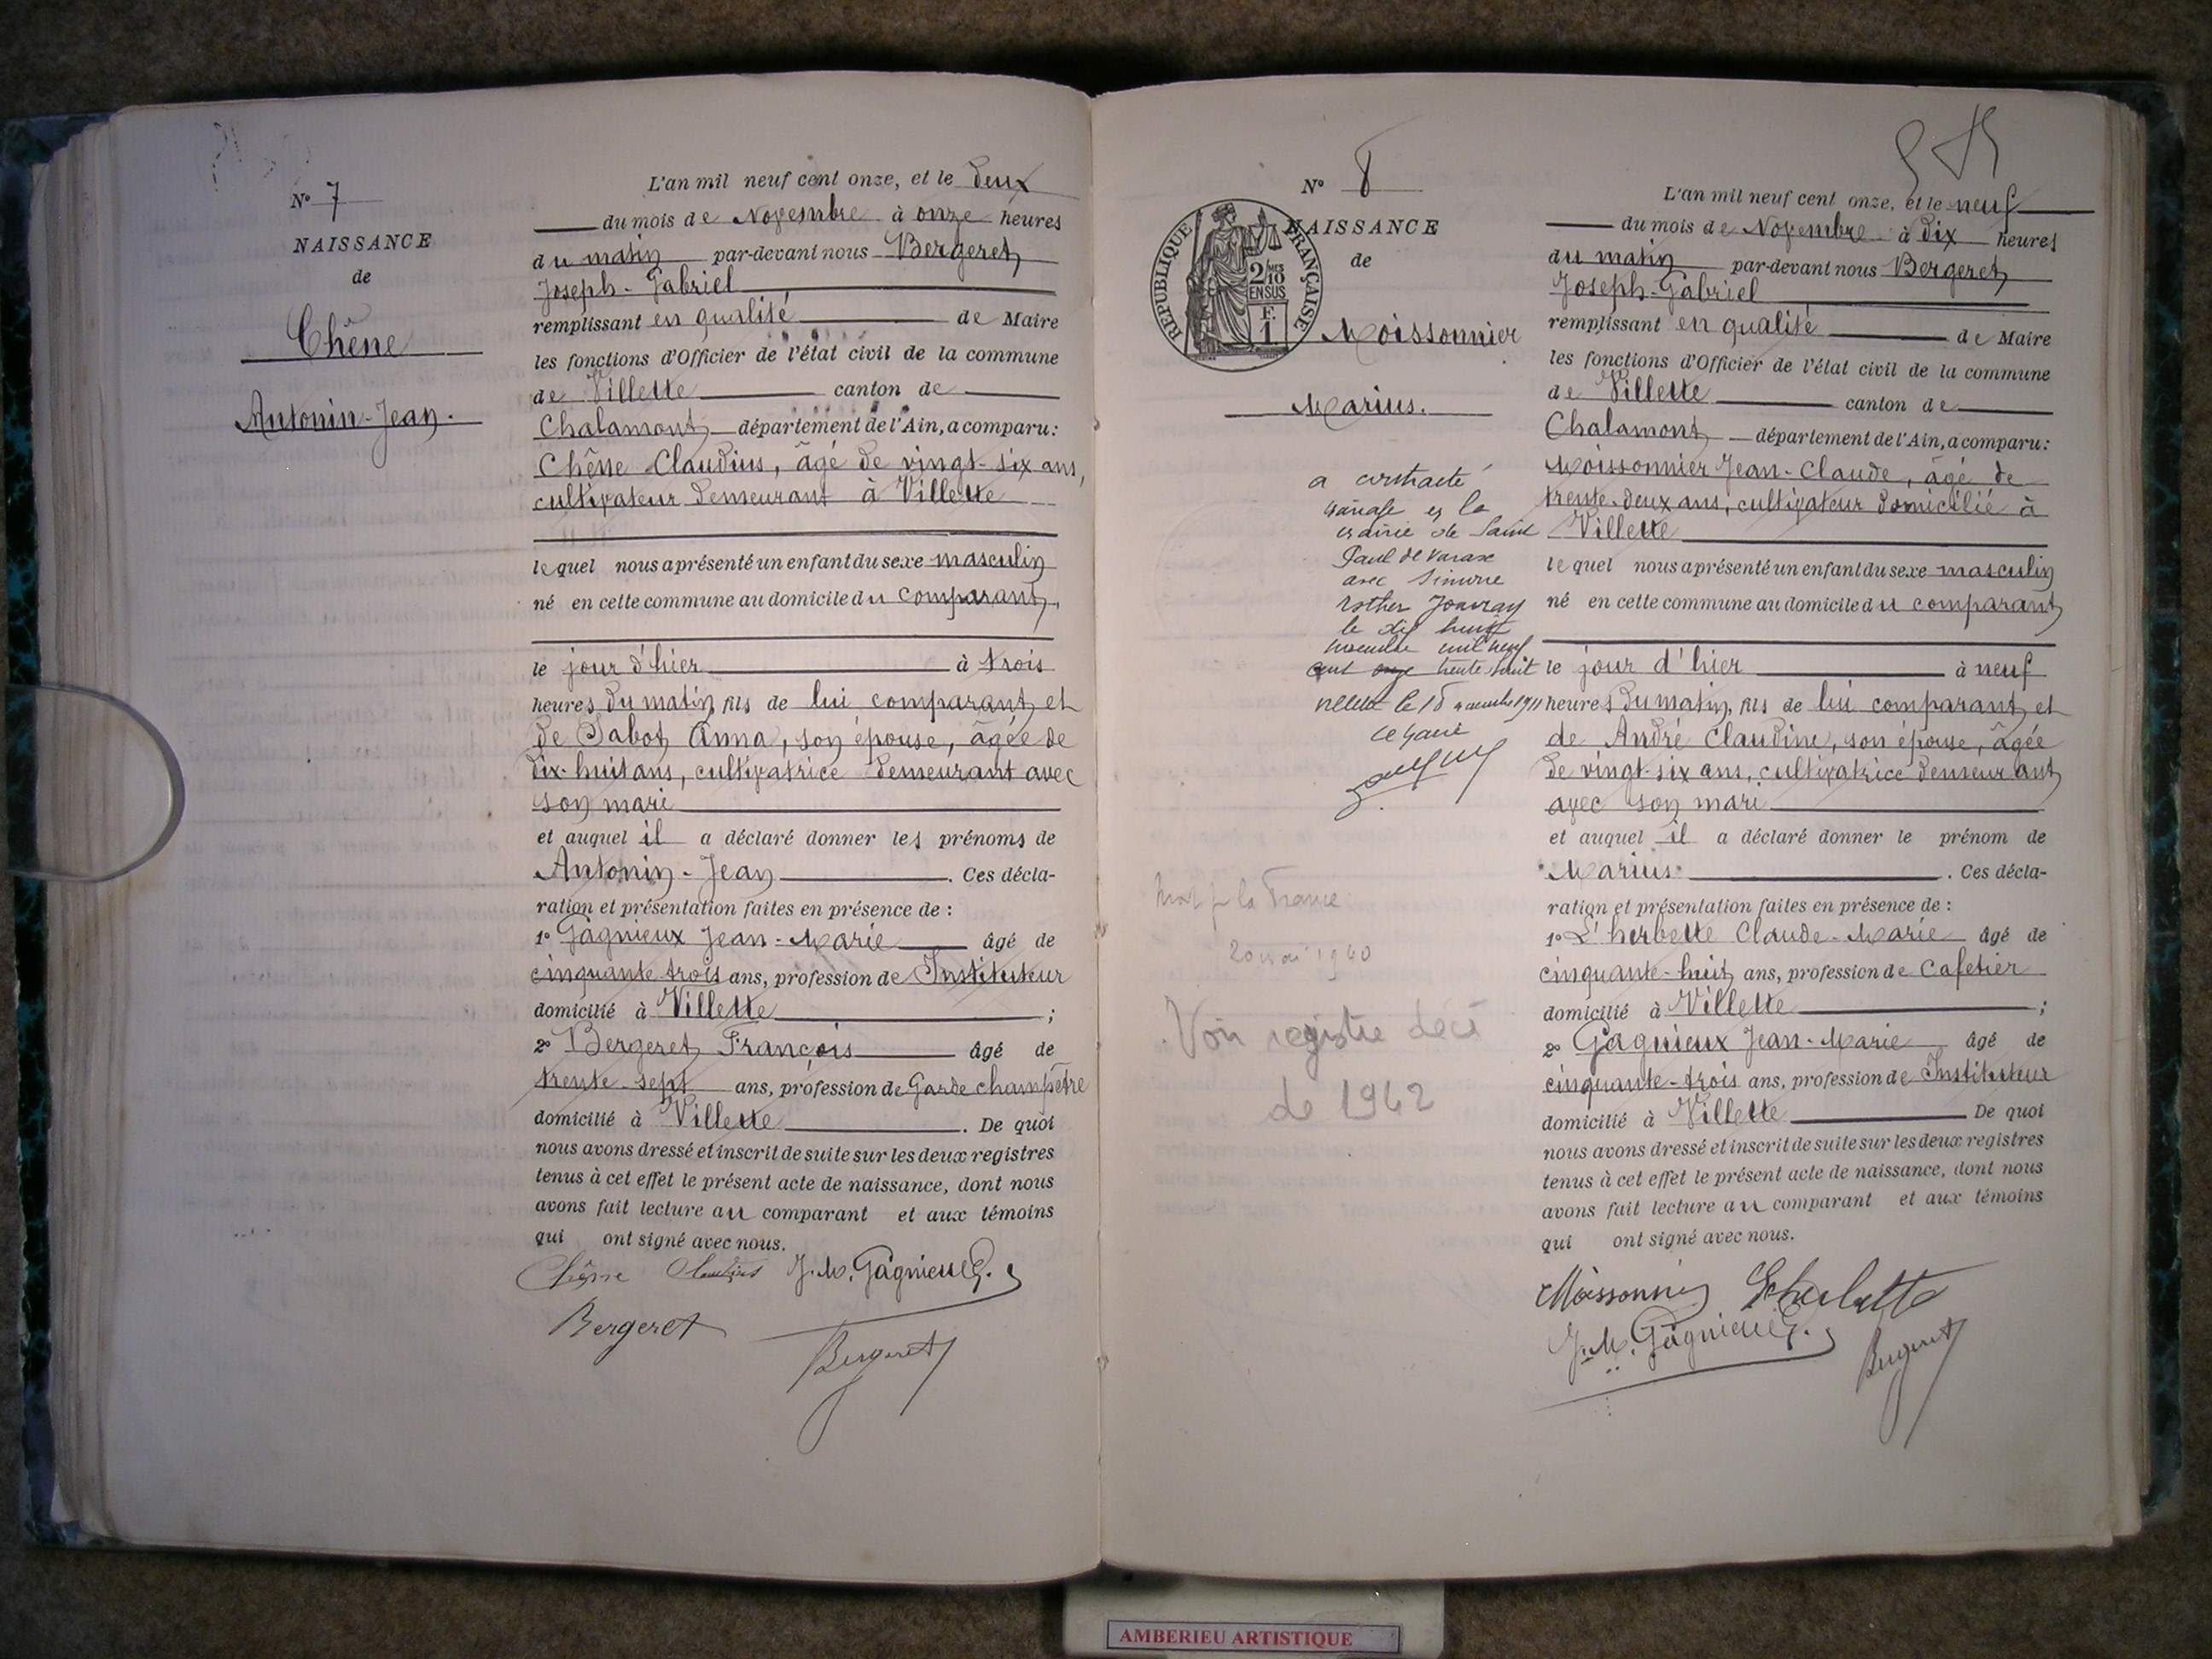 N° 7
NAISSANCE
de
Chêne
Antonin-Jean.
L'an mil neuf cent onze, et le deux
du mois de Novembre à onze heures
du matin par-devant nous Bergeret
Joseph-Gabriel
remplissant en qualité de Maire
les fonctions d'Officier de l'état civil de la commune
de Villette canton de
Chalamont département de l'Ain, a comparu:
Chêne Claudius, âgé de vingt-six ans,
cultivateur demeurant à Villette
lequel nous a présenté un enfant du sexe masculin
né en cette commune au domicile du comparant,
le jour d'hier à trois
heures du matin, fils de lui comparant et
de Sabot Anna, son épouse, âgée de
dix-huit ans, cultivatrice demeurant avec
son mari
et auquel il a déclaré donner les prénoms de
Antonin-Jean. Ces décla-
ration et présentation faites en présence de :
1° Gagnieux Jean-Marie âgé de
cinquante-trois ans, profession de Instituteur
domicilié à Villette ;
2° Bergeret François âgé de
trente-sept ans, profession de Garde champêtre
domicilié à Villette. De quoi
nous avons dressé et inscrit de suite sur les deux registres
tenus à cet effet le présent acte de naissance, dont nous
avons fait lecture au comparant et aux témoins
qui ont signé avec nous.
Chêne Claudius J.M. Gagnieux.
Bergeret
Bergeret
N° 8
NAISSANCE
de
RÉPUBLIQUE FRANÇAISE
2/10 MES
EN SUS
F.
1
Moissonnier
Marius.
a contracté
mariage en la
mairie de Saint
Paul de Varax
avec Simone
Jouvray
le dix huit
novembre mil neuf
cent onze trente huit
le 18 novembre
Le Maire
Mort p la France
20 mai 1940
Voir registre décè
de 1942
L'an mil neuf cent onze, et le neuf
du mois de Novembre à dix heures
du matin par-devant nous Bergeret
Joseph-Gabriel
remplissant en qualité de Maire
les fonctions d'Officier de l'état civil de la commune
de Villette canton de
Chalamont département de l'Ain, a comparu:
Moissonnier Jean-Claude, âgé de
trente-deux ans, cultivateur domicilié à
Villette
lequel nous a présenté un enfant du sexe masculin
né en cette commune au domicile du comparant
le jour d'hier à neuf
heures du matin, fils de lui comparant et
de André Claudine, son épouse, âgée
de vingt-six ans, cultivatrice demeurant
avec son mari
et auquel il a déclaré donner le prénom de
Marius. Ces décla-
ration et présentation faites en présence de :
1° L'herbette Claude-Marie âgé de
cinquante-huit ans, profession de cafetier
domicilié à Villette ;
2° Gagnieux Jean-Marie âgé de
cinquante-trois ans, profession de Instituteur
domicilié à Villette De quoi
nous avons dressé et inscrit de suite sur les deux registres
tenus à cet effet le présent acte de naissance, dont nous
avons fait lecture au comparant et aux témoins
qui ont signé avec nous.
Moissonnier Lherbette
J.M. Gagnieux.
Bergeret
AMBERIEU ARTISTIQUE